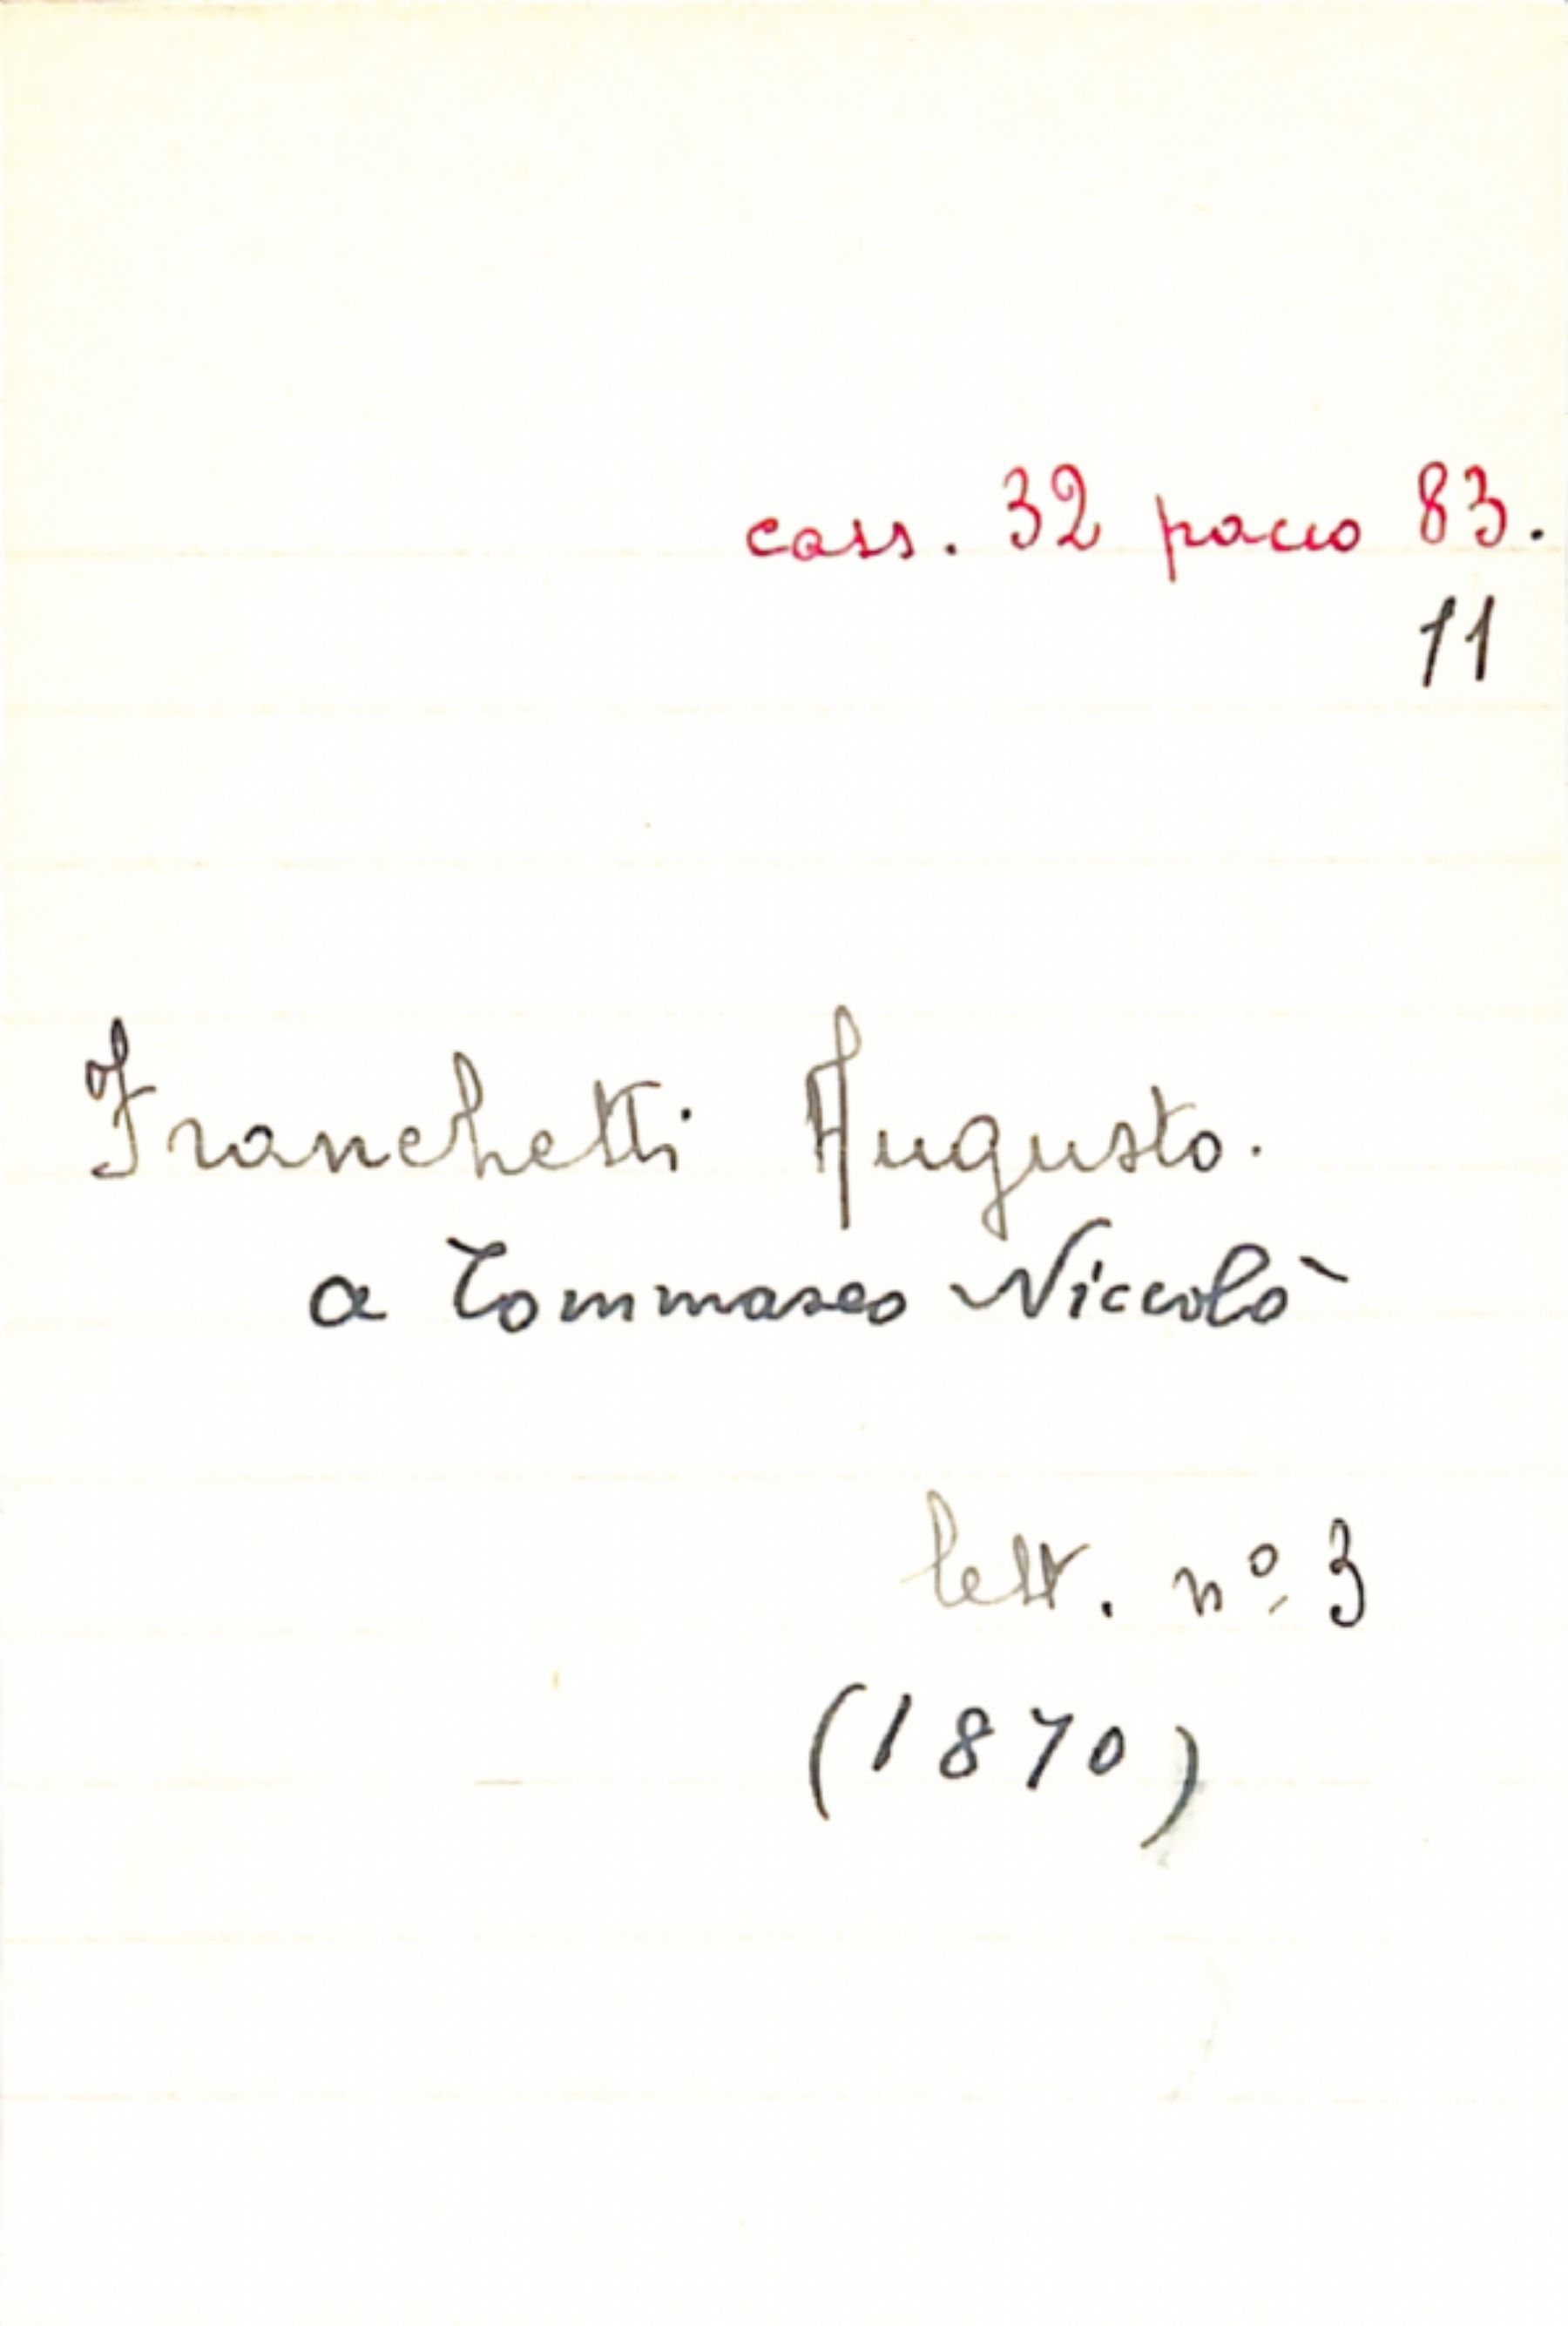 cass. 32 pacco 83.
11
Franchetti Augusto.
a Tommaseo Niccolò
lett. nº 3
(1870)